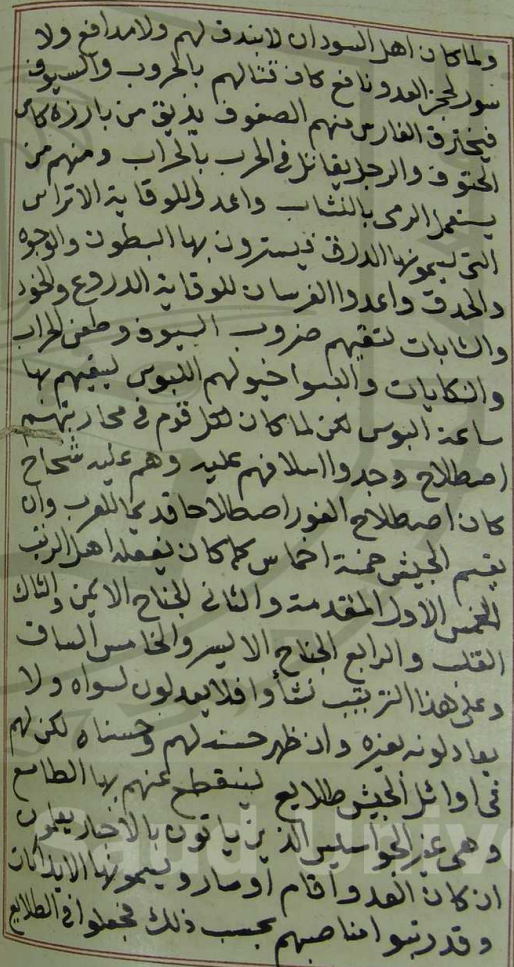 ولما كان اهل السودان لا بندق لهم ولا مدافع ولا
سور لحجز العدو نافع كان قتالهم بالحروب والسيوف
فيخترق الفارس منهم الصفوف يذيق من بارزه كاس
الحتوف والرجل يقاتل في الحرب بالحراب ومنهم من
يستعمل الرمى بالنشاب واعدوا للوقاية الاتراس
التى يسمونها الدرق فيسترون بها البطون والوجوه
والحدق واعدوا الفرسان للوقاية الدروع والخود
والنابات لتقيهم ضروب السيوف وطعن الحراب
والنكايات والبسوا خيولهم اللبوس ليقيهم بها
ساعة البوس لكن لما كان لكل قوم فى محاربتهم
اصطلاح وجدوا اسلافهم عليه وهم عليه شحاح
كان اصطلاح الفور اصطلاحا قديما للعرب وان
يقسم الجيش خمسة اخماس كما كان يفعله اهل الرتب
الخمس الاول المقدمة والثانى الجناح الايمن والثالث
القلب والرابع الجناح الايسر والخامس الساق
وعلى هذا الترتيب نشأوا فلا يعدلون لسواه ولا
يعادلونه بغيره وان ظهر حسنه لهم وحسناه لكن لهم
فى اوائل الجيش طلايع لينقطع عنهم بها الطامع
وهى غير الجواسيس الذين ياتون بالاخبار يعلمون
ان كان العدو اقام او سار ويسمونها
وقد رتبوا مناصبهم بحسب ذلك فجعلوا فى الطلايع
Saud Unive